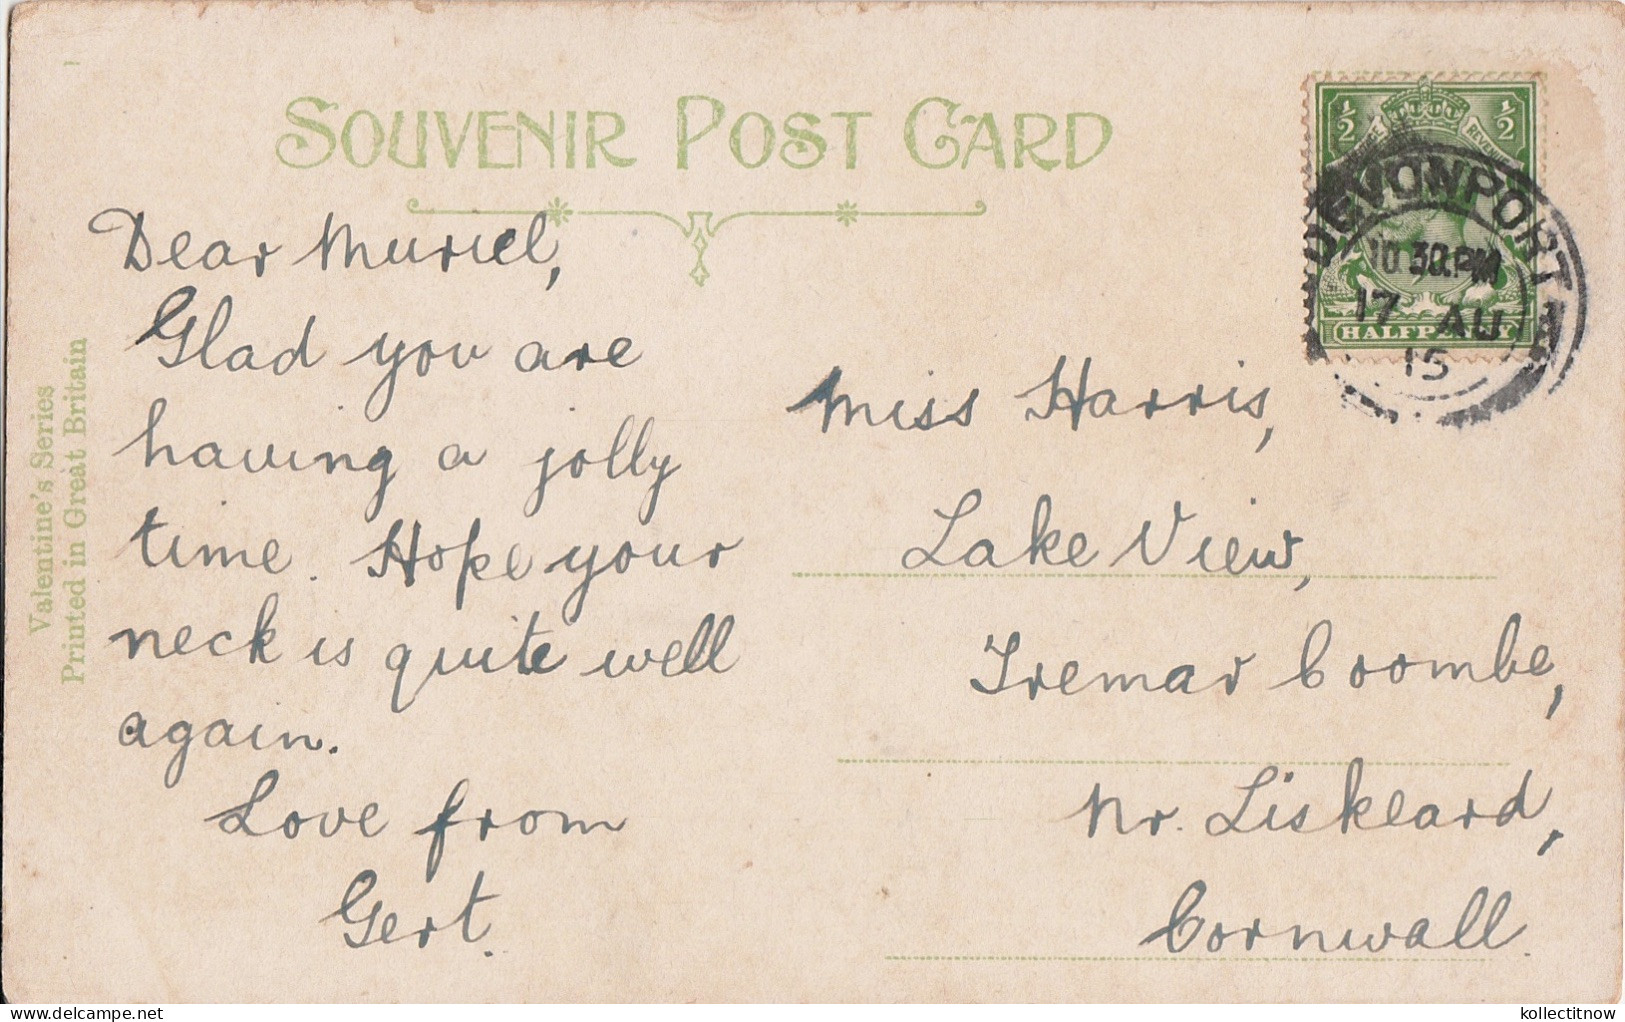 SOUVENIR POST CARD
Valentine's Series
Printed in Great Britain
Dear Muriel,
Glad you are
having a jolly
time. Hope your
neck is quite well
again.
Love from
Gert.
½ ½
REVENUE
HALFPENNY
DEVONPORT
10 30.PM
17 AU
15
Miss Harris,
Lake View,
Tremar Coombe,
Nr. Liskeard,
Cornwall.
kollectitnow